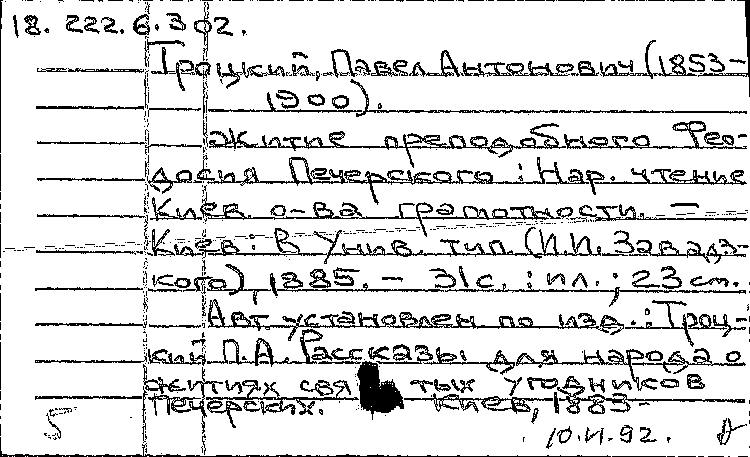 18. 222.6.302.
Троцкий, Павел Антонович (1853-
1900).
Житие преподобного Фео-
досия Печерского : Нар. чтение
Киев. о-ва грамотности. —
Киев : В Унив. тип. (И.И. Завадз-
кого), 1885. - 31с. : ил. ; 23 см.
Авт. установлен по изд.: Троц-
кий П.А. Рассказы для народа о
житиях свя тых угодников
Печерских. Киев, 1883-
5
92.